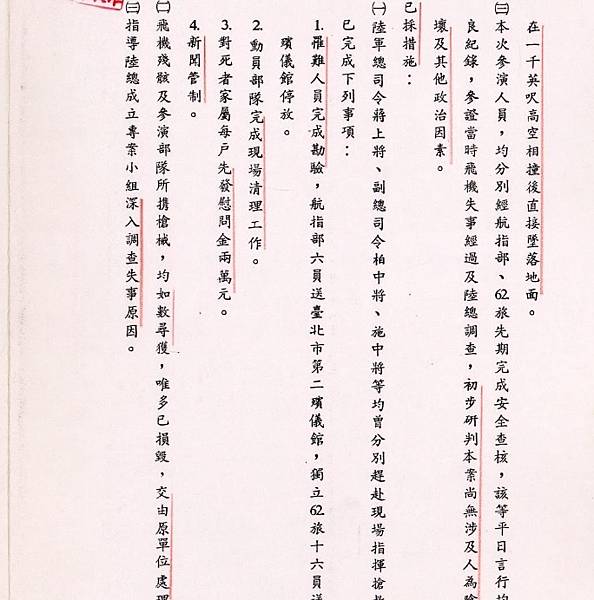 在一千英呎高空相撞後直接墜落地面。
㈢本次參演人員,均分別經航指部、62.旅先期完成安全查核,該等平日言行均
良紀錄,參證當時飛機失事經過及陸總調查,初步研判本案尚無涉及人為
壞及其他政治因素。
已採措施:
㈠陸軍總司令蔣上將、副總司令柏中將、施中將等均曾分別趕赴現場指揮搶救
已完成下列事項:
1.罹難人員完成勘驗,航指部六員送臺北市第二殯儀館,獨立62.旅十六員送
殯儀館停放。
2.動員部隊完成現場清理工作。
3.對死者家屬每戶先發慰問金兩萬元。
4.新聞管制。
㈡飛機殘骸及參演部隊所携槍械,均如數尋獲,唯多已損毀,交由原單位處理
㈢指導陸總成立專案小組深入調查失事原因。